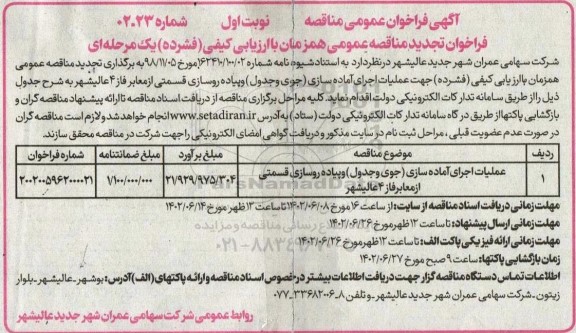 آگهی فراخوان عمومی مناقصه نوبت اول شماره ۰۲.۲۳
فراخوان تجدید مناقصه عمومی همزمان با ارزیابی کیفی (فشرده) یک مرحله‌ای
شرکت سهامی عمران شهر جدید عالیشهر در نظر دارد به استناد شیوه نامه شماره ۱۶۲۴۱۰/۱۰۰/۰۲ مورخ ۹۸/۱۱/۰۵ به برگذاری تجدید مناقصه عمومی
همزمان با ارزیابی کیفی (فشرده) جهت عملیات اجرای آماده سازی (جوی وجدول) وپیاده روسازی قسمتی ازمعابر فاز ۴ عالیشهر به شرح جدول
ذیل را از طریق سامانه تدارکات الکترونیکی دولت اقدام نماید. کلیه مراحل برگزاری مناقصه از دریافت اسناد مناقصه تا ارائه پیشنهاد مناقصه گران و
بازگشایی پاکتها از طریق درگاه سامانه تدارکات الکترونیکی دولت (ستاد) به آدرس www.setadiran.ir انجام خواهد شد و لازم است مناقصه گران
در صورت عدم عضویت قبلی، مراحل ثبت نام در سایت مذکور و دریافت گواهی امضای الکترونیکی را جهت شرکت در مناقصه محقق سازند.
ردیف موضوع مناقصه مبلغ برآورد مبلغ ضمانتنامه شماره فراخوان
۱ عملیات اجرای آماده سازی (جوی وجدول) وپیاده روسازی قسمتی ازمعابر فاز ۴ عالیشهر ۲۱/۹۲۹/۹۷۵/۳۰۴ ۱/۱۰۰/۰۰۰/۰۰۰ ۲۰۰۲۰۰۵۹۶۲۰۰۰۰۲۱
مهلت زمانی دریافت اسناد مناقصه از سایت: از ساعت ۱۶ مورخ ۱۴۰۲/۰۶/۰۸ تا ساعت ۱۲ ظهر مورخ ۱۴۰۲/۰۶/۱۴
مهلت زمانی ارسال پیشنهاد: تا ساعت ۱۲ ظهر مورخ ۱۴۰۲/۰۶/۲۶
مهلت زمانی ارائه فیزیکی پاکت الف: تا ساعت ۱۲ ظهر مورخ ۱۴۰۲/۰۶/۲۶
زمان بازگشایی پاکتها: ساعت ۹ صبح مورخ ۱۴۰۲/۰۶/۲۷
اطلاعات تماس دستگاه مناقصه گزار جهت دریافت اطلاعات بیشتر در خصوص اسناد مناقصه و ارائه پاکتهای (الف) آدرس: بوشهر - عالیشهر - بلوار
زیتون - شرکت سهامی عمران شهر جدید عالیشهر - و تلفن ۸-۳۳۶۸۲۰۰۶-۰۷۷
روابط عمومی شرکت سهامی عمران شهر جدید عالیشهر